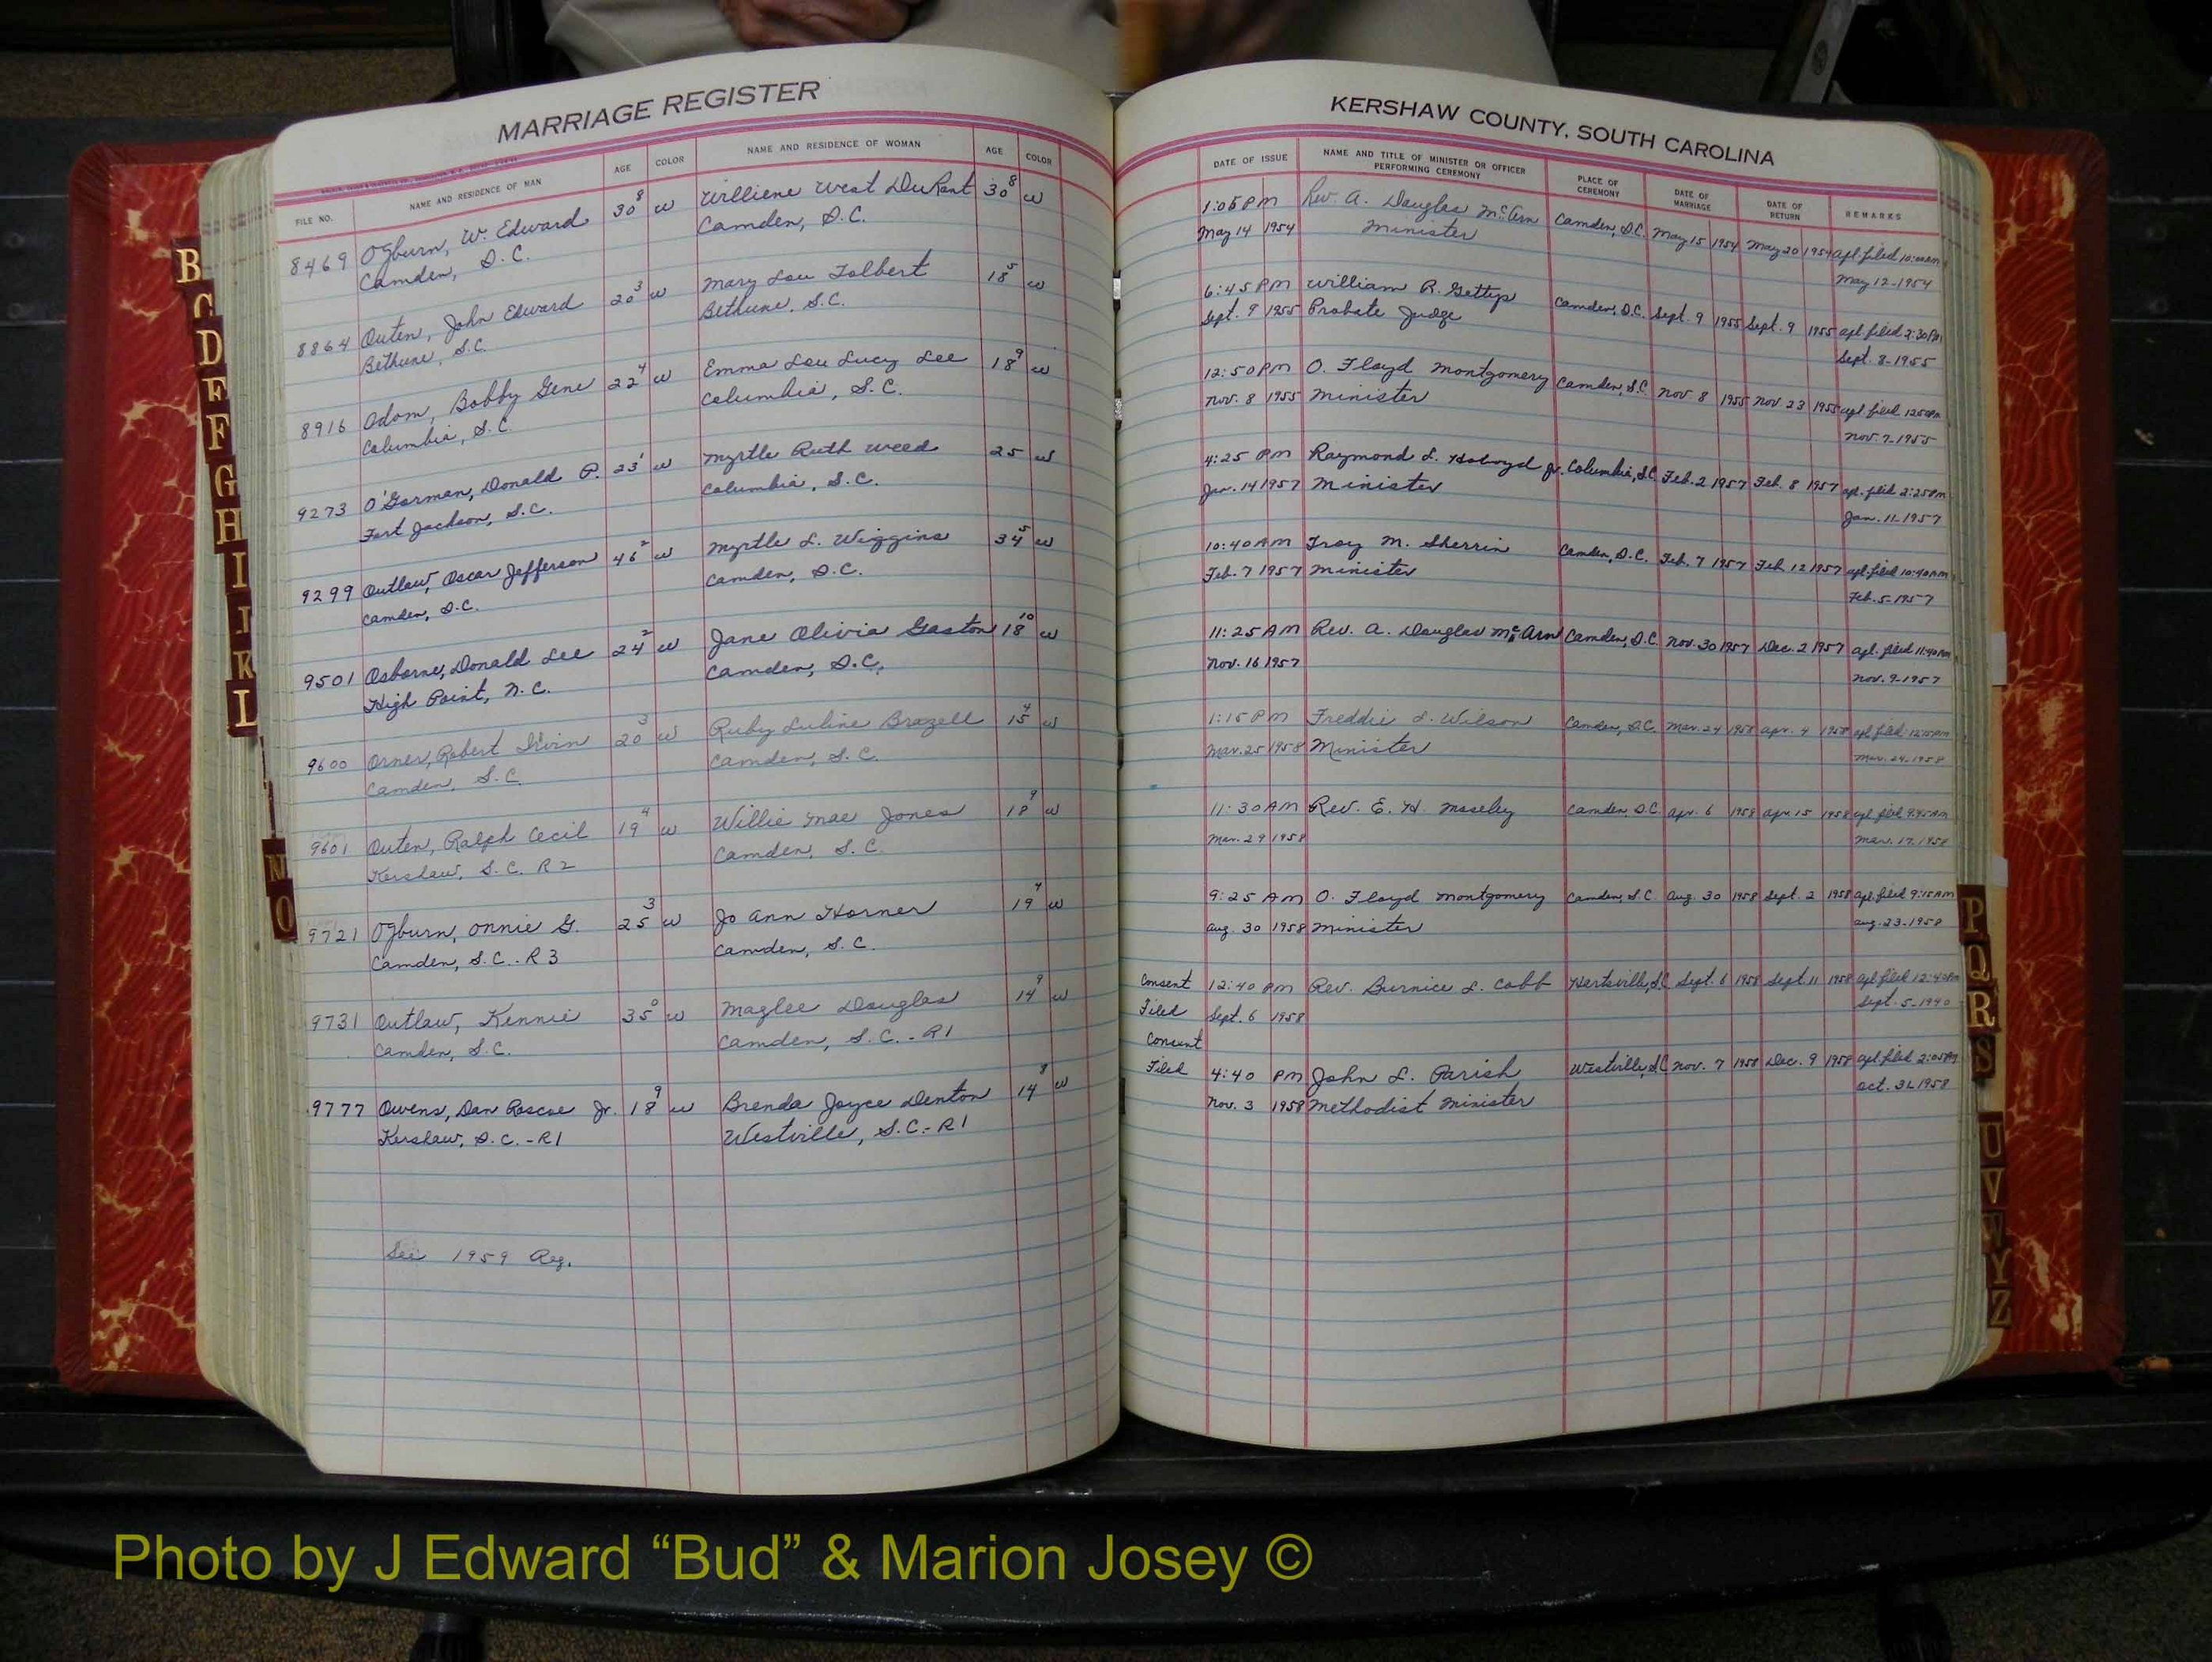 MARRIAGE REGISTER
FILE NO. NAME AND RESIDENCE OF MAN AGE COLOR NAME AND RESIDENCE OF WOMAN AGE COLOR
8469 Ogburn, W. Edward 30 8 w Williene West DuRant 30 8 w
Camden, S.C. Camden, S.C.
8864 Outen, John Edward 20 3 w Mary Lou Tolbert 18 5 w
Bethune, S.C. Bethune, S.C.
8916 Odom, Bobby Gene 22 4 w Emma Lou Lucy Lee 18 9 w
Columbia, S.C. Columbia, S.C.
9273 O'Gorman, Donald P. 23 1 w Myrtle Ruth Weed 25 w
Fort Jackson, S.C. Columbia, S.C.
9299 Outlaw, Oscar Jefferson 46 2 w Myrtle L. Wiggins 34 5 w
Camden, S.C. Camden, S.C.
9501 Osborne, Donald Lee 24 2 w Jane Olivia Gaston 18 10 w
High Point, N.C. Camden, S.C.
9600 Orner, Robert Irvin 20 3 w Ruby Luline Brazell 15 4 w
Camden, S.C. Camden, S.C.
9601 Outen, Ralph Cecil 19 4 w Willie Mae Jones 18 9 w
Kershaw, S.C. R2 Camden, S.C.
9721 Ogburn, Onnie G. 25 3 w Jo Ann Horner 19 4 w
Camden, S.C. - R3 Camden, S.C.
9731 Outlaw, Kennie 35 0 w Maglee Douglas 14 9 w
Camden, S.C. Camden, S.C. - R1
9777 Owens, Dan Roscoe Jr. 18 9 w Brenda Joyce Denton 14 8 w
Kershaw, S.C. - R1 Westville, S.C. - R1
See 1959 Reg.
KERSHAW COUNTY, SOUTH CAROLINA
DATE OF ISSUE NAME AND TITLE OF MINISTER OR OFFICER PERFORMING CEREMONY PLACE OF CEREMONY DATE OF MARRIAGE DATE OF RETURN REMARKS
1:05 PM Rev. A. Douglas McArn Camden, S.C. May 15 1954 May 20 1954 apl. filed 10:00AM
May 14 1954 Minister May 12-1954
6:45 PM William R. Gettys Camden, S.C. Sept. 9 1955 Sept. 9 1955 apl. filed 2:30PM
Sept. 9 1955 Probate Judge Sept. 8-1955
12:50 PM O. Floyd Montgomery Camden, S.C. Nov. 8 1955 Nov. 23 1955 apl. filed 12:50PM
Nov. 8 1955 Minister Nov. 7-1955
4:25 PM Raymond L. Holroyd Jr. Columbia, S.C. Feb. 2 1957 Feb. 8 1957 apl. filed 2:25PM
Jan. 14 1957 Minister Jan. 11-1957
10:40 AM Troy M. Sherrin Camden, S.C. Feb. 7 1957 Feb. 12 1957 apl. filed 10:40AM
Feb. 7 1957 Minister Feb. 5-1957
11:25 AM Rev. A. Douglas McArn Camden, S.C. Nov. 30 1957 Dec. 2 1957 apl. filed 11:40AM
Nov. 16 1957 Nov. 9-1957
1:15 PM Freddie L. Wilson Camden, S.C. Mar. 24 1958 Apr. 4 1958 apl. filed 12:15PM
Mar. 25 1958 Minister Mar. 24-1958
11:30 AM Rev. E. H. Moseley Camden, S.C. Apr. 6 1958 Apr. 15 1958 apl. filed 9:45AM
Mar. 29 1958 Mar. 17-1958
9:25 AM O. Floyd Montgomery Camden, S.C. Aug. 30 1958 Sept. 2 1958 apl. filed 9:15AM
Aug. 30 1958 Minister Aug. 23-1958
Consent 12:40 PM Rev. Burnice L. Cobb Hartsville, S.C. Sept. 6 1958 Sept. 11 1958 apl. filed 12:40PM
Filed Sept. 6 1958 Sept. 5-1940
Consent
Filed 4:40 PM John L. Parish Westville, S.C. Nov. 7 1958 Dec. 9 1958 apl. filed 2:05PM
Nov. 3 1958 Methodist Minister Oct. 31 1958
B
C
D
E
F
G
H
I
J
K
L
N
O
P
Q
R
S
U
V
W
Y
Z
Photo by J Edward “Bud” & Marion Josey ©